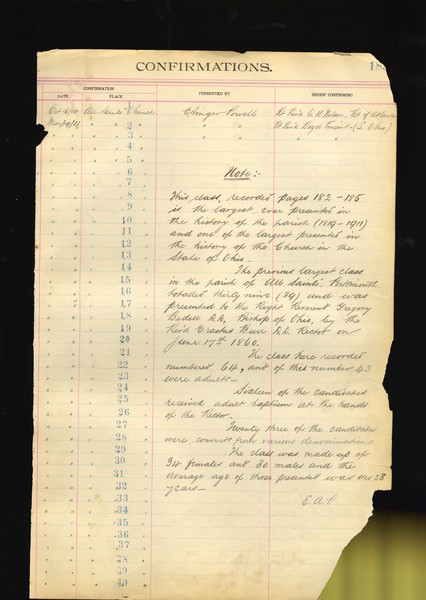 CONFIRMATIONS.
18
CONFIRMATION
DATE
PLACE
PRESENTED BY
BISHOP CONFIRMING
Oct 16/10 All Saints Church
Powell
Rt Rev'd
Mar 19/11 " " 2
Rt Rev'd Boyd Vincent (S. Ohio)
3
4
5
6
7
8
9
10
11
12
13
14
15
16
17
18
19
20
21
22
23
24
25
26
27
28
29
30
31
32
33
34
35
36
37
38
39
40
Note:-
This class, recorded pages 182 - 185
is the largest ever presented in
the history of the parish (1819-1911)
and one of the largest presented in
the history of the Church in the
State of Ohio.
The previous largest class
in the parish of All Saints', Portsmouth
totalled thirty nine (39) and was
presented to the Right Reverent Gregory
Bedell D.D. Bishop of Ohio, by the
Rev'd Erastus Burr D.D. Rector on
June 17th 1860.
The class here recorded
numbered 64, and of this number 43
were adults -
Sixteen of the candidates
received adult baptism at the hands
of the Rector.
Twenty three of the candidates
were converts from various denominations
The class was made up of
34 females and 30 males and the
average age of those presented was over 28
years -
E. A. P.